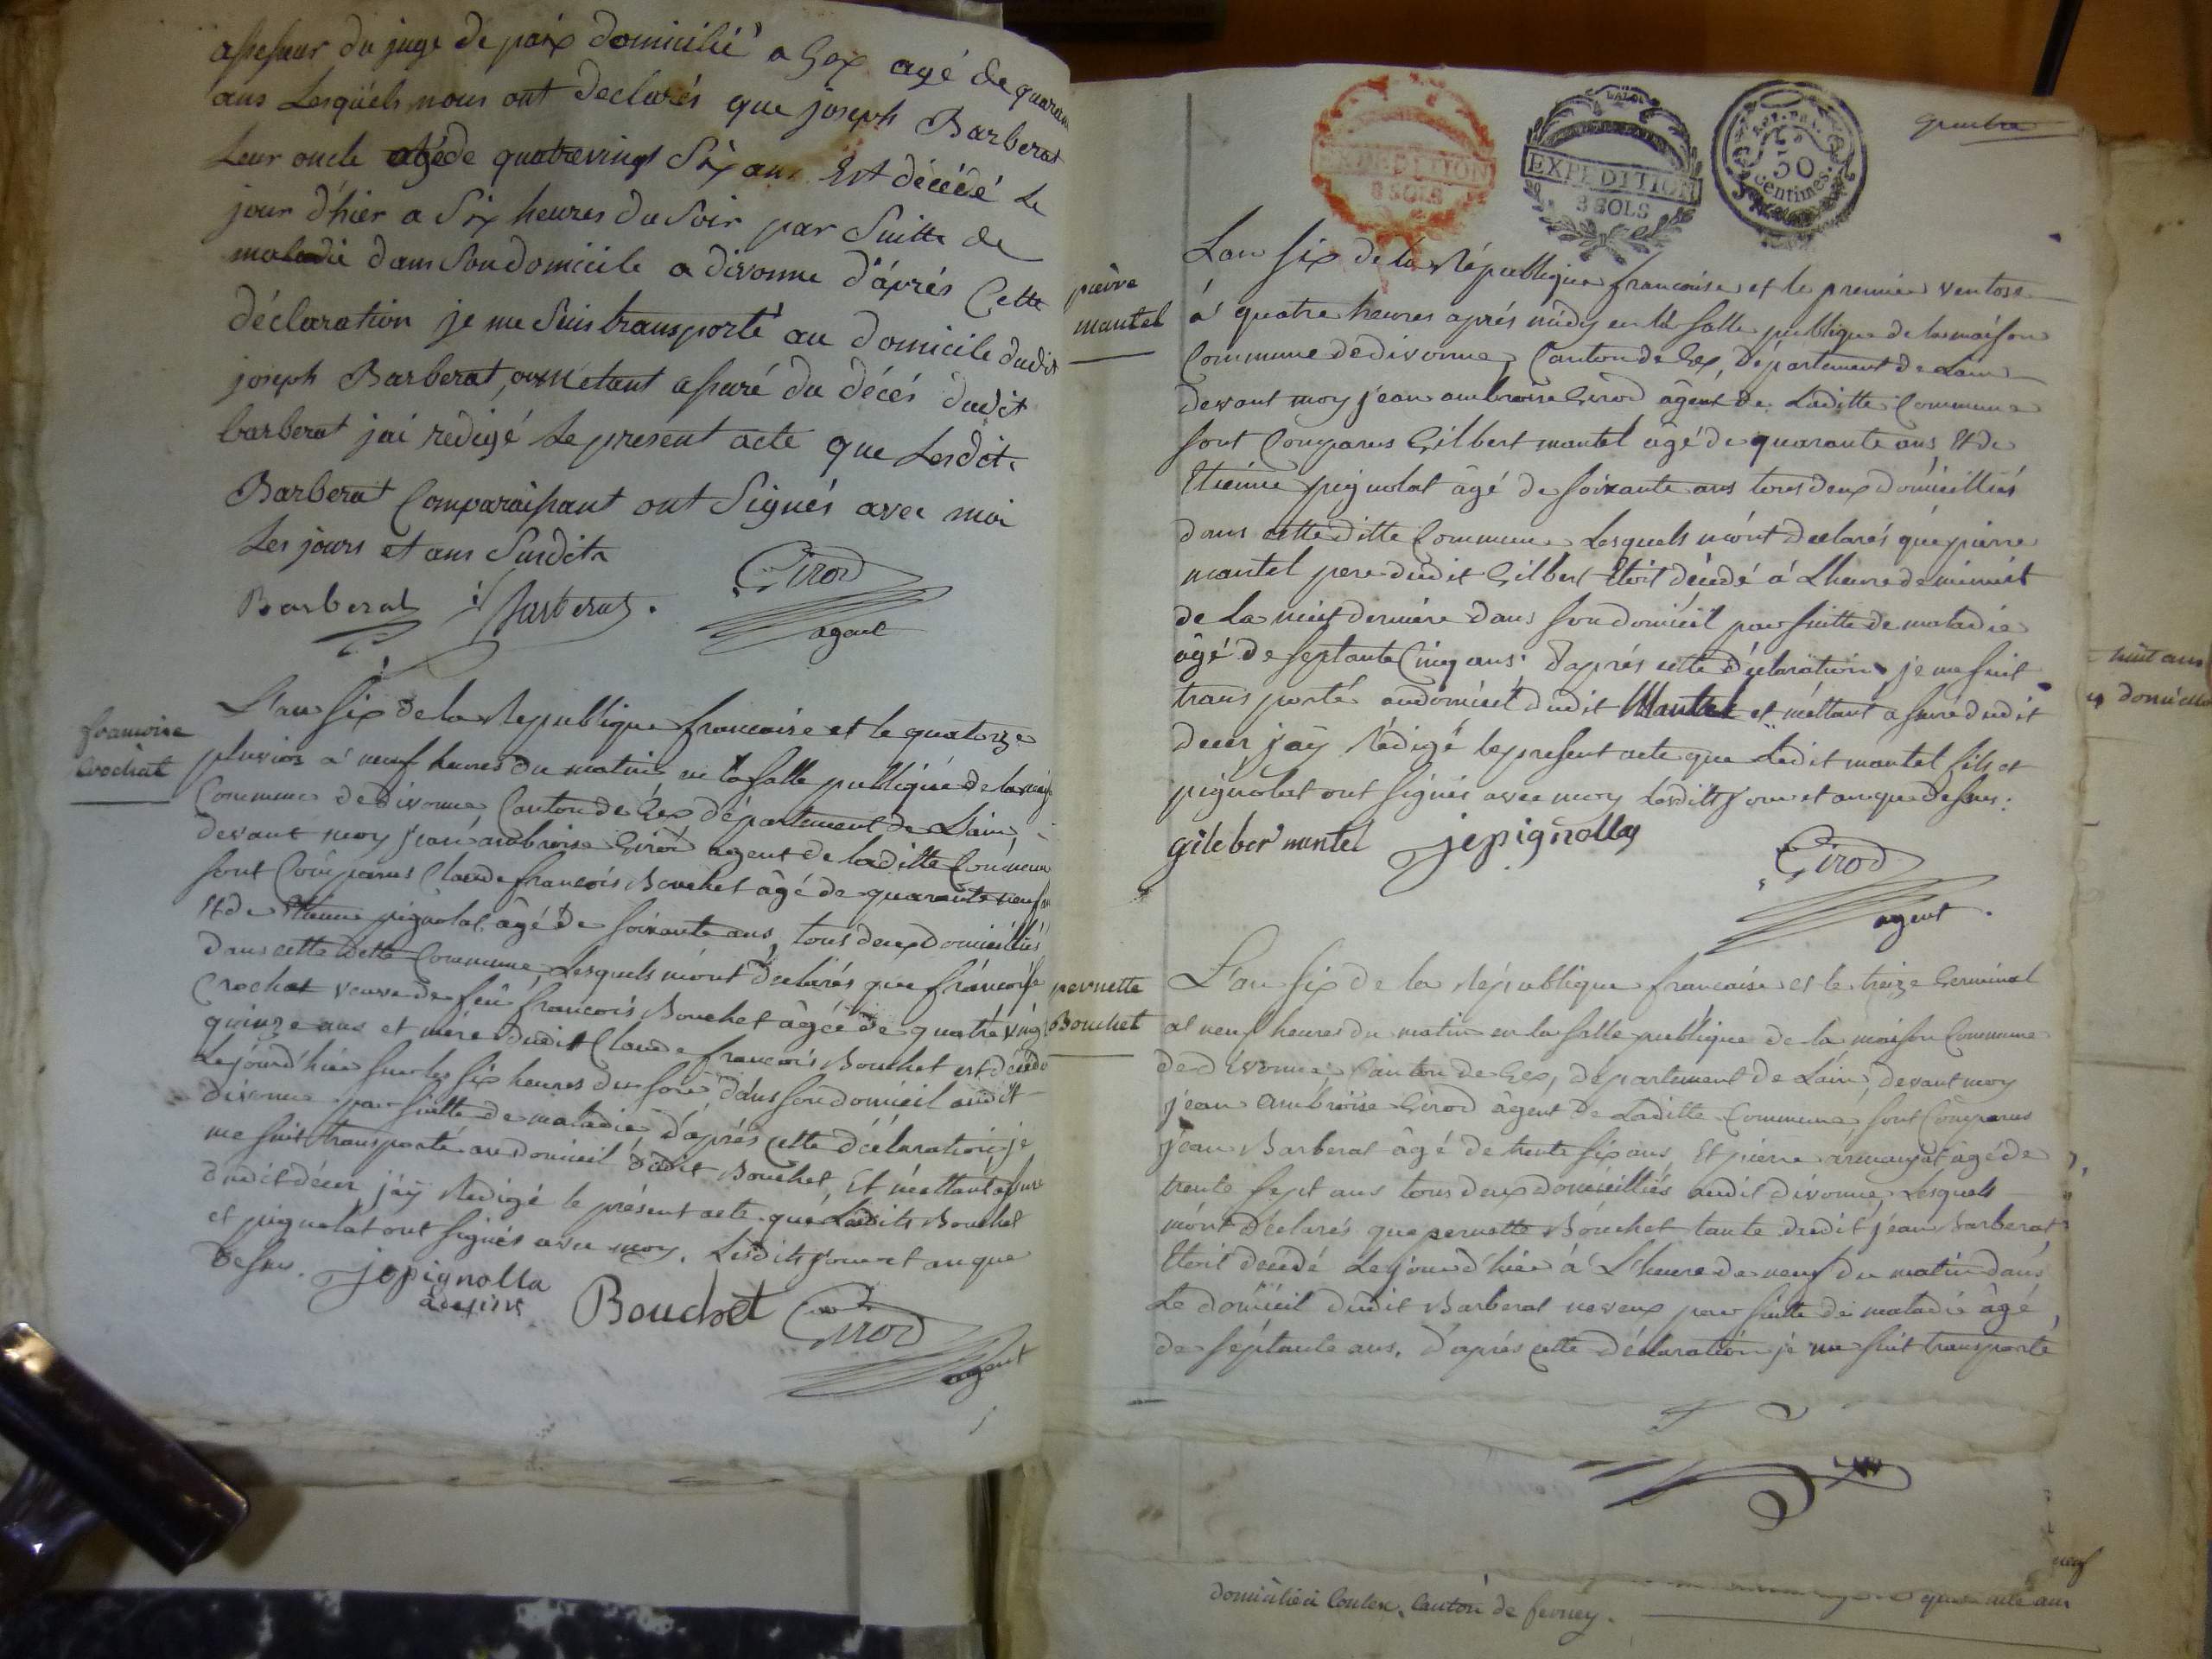 assesseur du juge de paix domicilié a Gex agé de quaran
ans Lesquels nous ont declarés que joseph Barberat
Leur oncle agé de quatrevingt Six ans Est décédé Le
jour d'hier a Six heures du Soir par Suitte de
maladie dans Son domicile a divonne d'áprés Cette
déclaration je me Suis transporté au domicile dudit
joseph Barberat, ou metant assuré du décés dudit
barberat jai redigé Le present acte que Lesdits
Barberat Comparaissant ont Signés avec moi
Les jours et ans Susdits
Barberat Barberat. Girod
agent
francoise
Crochat
L'an six de la Republique francoise et le quatorze
pluvios á neuf heures du matin en la salle publique de la mais
Commune de divonne, Canton de Gex département de Lain,
devant moy jean ambroise Girod agent de laditte Commune
sont Comparus Claude francois Bouchet âgé de quarante neuf an
Et de Etienne pignolat âgé de soixante ans, tous deux domicilliés
dans cette ditte Commune, Lesquels m'ont déclarés que francoise
Crochat veuve de feu francois Bouchet âgée de quatre ving
quinze ans et mere dudit Claude francois Bouchet est décédé
Le jour d'hier sur les six heures du soir dans son domicil audit
divonne par suitte de maladie d'aprés cette déclaration je
me suit transporté au domicil dudit Bouchet, Et m'ettant assuré
dudit décer, j'ay Redigé le présent acte que Lesdits Bouchet
et pignolat ont signés avec moy. Lesdits jour et an que
dessus. jepignolla
Bouchet Girod
agent
EXPEDITION
8 SOLS
EXPEDITION
3 SOLS
50
centimes.
pierre
mantel
Lan six de la République francoise et le premier ventose
á quatre heures aprés midy en la salle publique de la maison
Commune de divonne, Canton de Gex, Département de Lain
devant moy jean ambroise Girod âgent de Laditte Commune
sont Comparus Gilbert mantel âgé de quarante ans, Et de
Etienne pignolat âgé de soixante ans tous deux domicilliés
dans cette ditte Commune Lesquels m'ont declarés que pierre
mantel pere dudit Gilbert Etoit décédé á L'heure de minuit
de La nuit derniere dans son domicil par suitte de maladie
âgé de septante Cinq ans. d'aprés cette déclaration je me suit
transporté audomicil dudit Mantel et m'éttant assuré dudit
decer, j'ay Rédigé le present acte que Ledit mantel fils et
pignolat ont signés avec moy Lesdits jour et an que dessus:
gileber mentel jepignolla Girod
agent.
pernette
Bouchet
L'an six de la République francaise et le treize Germinal
a neuf heures du matin en la salle publique de la maison Commune
de divonne, Canton de Gex, departement de Lain, devant moy
jean Ambroise Girod âgent de Laditte Commune, sont Comparus
jean Barberat âgé de trente six ans, Et pierre âgé de
trente sept ans tous deux domicilliés audit divonne, Lesquels
m'ont déclarés que pernette Bouchet tante dudit jean Barberat
Etoit décédé Le jour d'hier á L'heure de neuf du matin dans
Le domicil dudit Barberat neveux, par suitte de maladie âgé
de séptante ans, d'aprés cette déclaration je me suit transporté
huit ans
domicilié
neuf
quarante ans
domicilié à Canton de ferney.